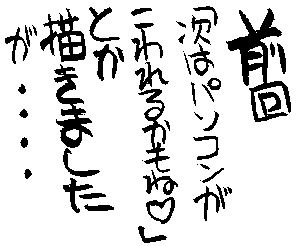 前回
「次はパソコンが
こわれるかもね♡」
とか
描きました
が・・・・